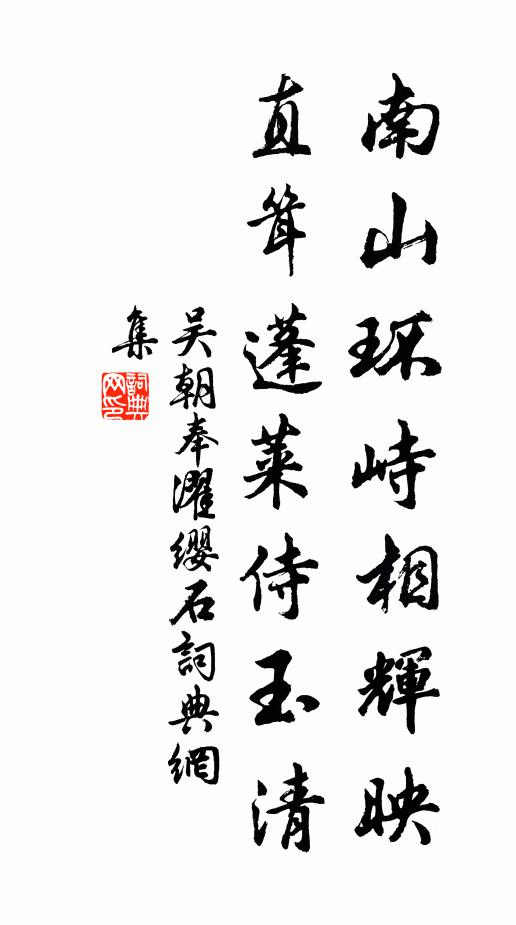 南山环峙相輝映
直聳蓬莱侍玉清
吴朝奉濯缨石詞典網
集
詞典
网